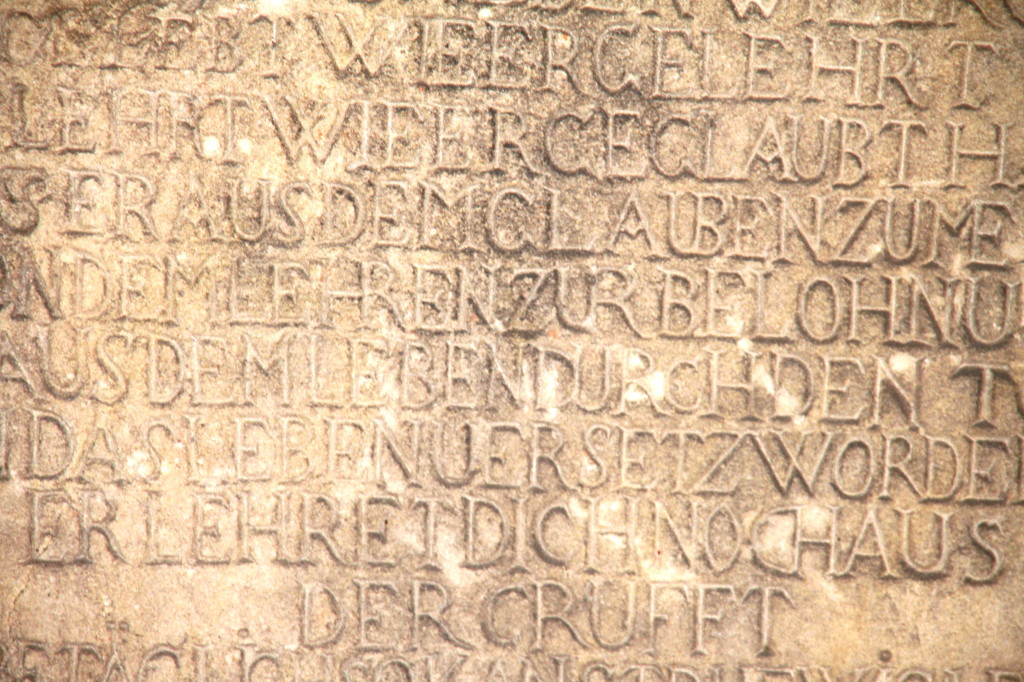 WIE ER
GELEBT WIE ER GELEHRT
LEHRT WIE ER GEGLAUBT H
ER AUS DEM GLAUBEN ZUM E
DEM LEHREN ZUR BELOHNU
AUS DEM LEBEN DURCH DEN T
DAS LEBEN UERSETZ WORDE
ER LEHRET DICH NOCH AUS
DER GRUFFT